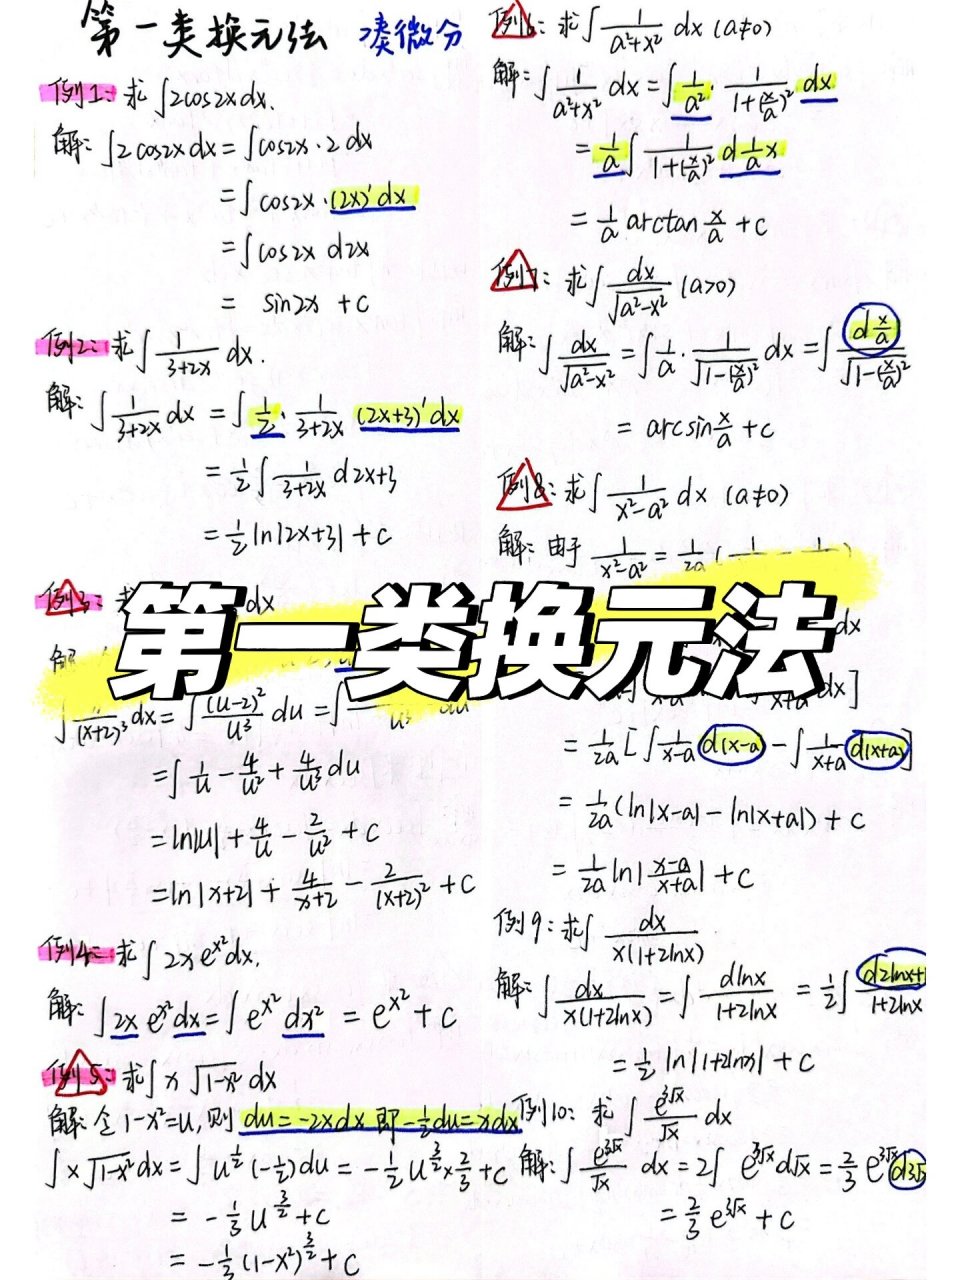 第一类换元法 凑微分
例1: 求∫2cos2xdx.
解: ∫2cos2xdx = ∫cos2x·2dx
= ∫cos2x·(2x)'dx
= ∫cos2x d2x
= sin2x + c
例2: 求∫1/(3+2x) dx.
解: ∫1/(3+2x) dx = ∫1/2 · 1/(3+2x) (2x+3)'dx
= 1/2∫1/(3+2x) d2x+3
= 1/2 ln|2x+3| + c
例3:
dx
∫ /(x+2)³ dx = ∫(u-2)²/u³ du = ∫
= ∫1/u - 4/u² + 4/u³ du
= ln|u| + 4/u - 2/u² + c
= ln|x+2| + 4/(x+2) - 2/(x+2)² + c
例4: 求∫2xe^x²dx.
解: ∫2xe^x²dx = ∫e^x²dx² = e^x² + c
例5: 求∫x√(1-x²) dx
解: 令1-x²=u, 则du=-2xdx 即-1/2du=xdx
∫x√(1-x²) dx = ∫u^(1/2)(-1/2)du = -1/2u^(3/2)×2/3 + c
= -1/3u^(3/2) + c
= -1/3(1-x²)^(3/2) + c
例6: 求∫1/(a²+x²) dx (a≠0)
解: ∫1/(a²+x²) dx = ∫1/a² · 1/(1+(x/a)²) dx
= 1/a∫1/(1+(x/a)²) d1/a x
= 1/a arctan x/a + c
例7: 求∫dx/√(a²-x²) (a>0)
解: ∫dx/√(a²-x²) = ∫1/a · 1/√(1-(x/a)²) dx = ∫(d x/a)/√(1-(x/a)²)
= arcsin x/a + c
例8: 求∫1/(x²-a²) dx (a≠0)
解: 由于 1/(x²-a²) = 1/2a (
dx
dx]
= 1/2a[∫1/(x-a) d(x-a) - ∫1/(x+a) d(x+a)]
= 1/2a(ln|x-a| - ln|x+a|) + c
= 1/2a ln|(x-a)/(x+a)| + c
例9: 求∫dx/(x(1+2lnx))
解: ∫dx/(x(1+2lnx)) = ∫dlnx/(1+2lnx) = 1/2∫d2lnx+1/(1+2lnx)
= 1/2 ln|1+2lnx| + c
例10: 求∫e^(3√x)/√x dx
解: ∫e^(3√x)/√x dx = 2∫e^(3√x)d√x = 2/3 e^(3√x)d3√x
= 2/3 e^(3√x) + c
第一类换元法